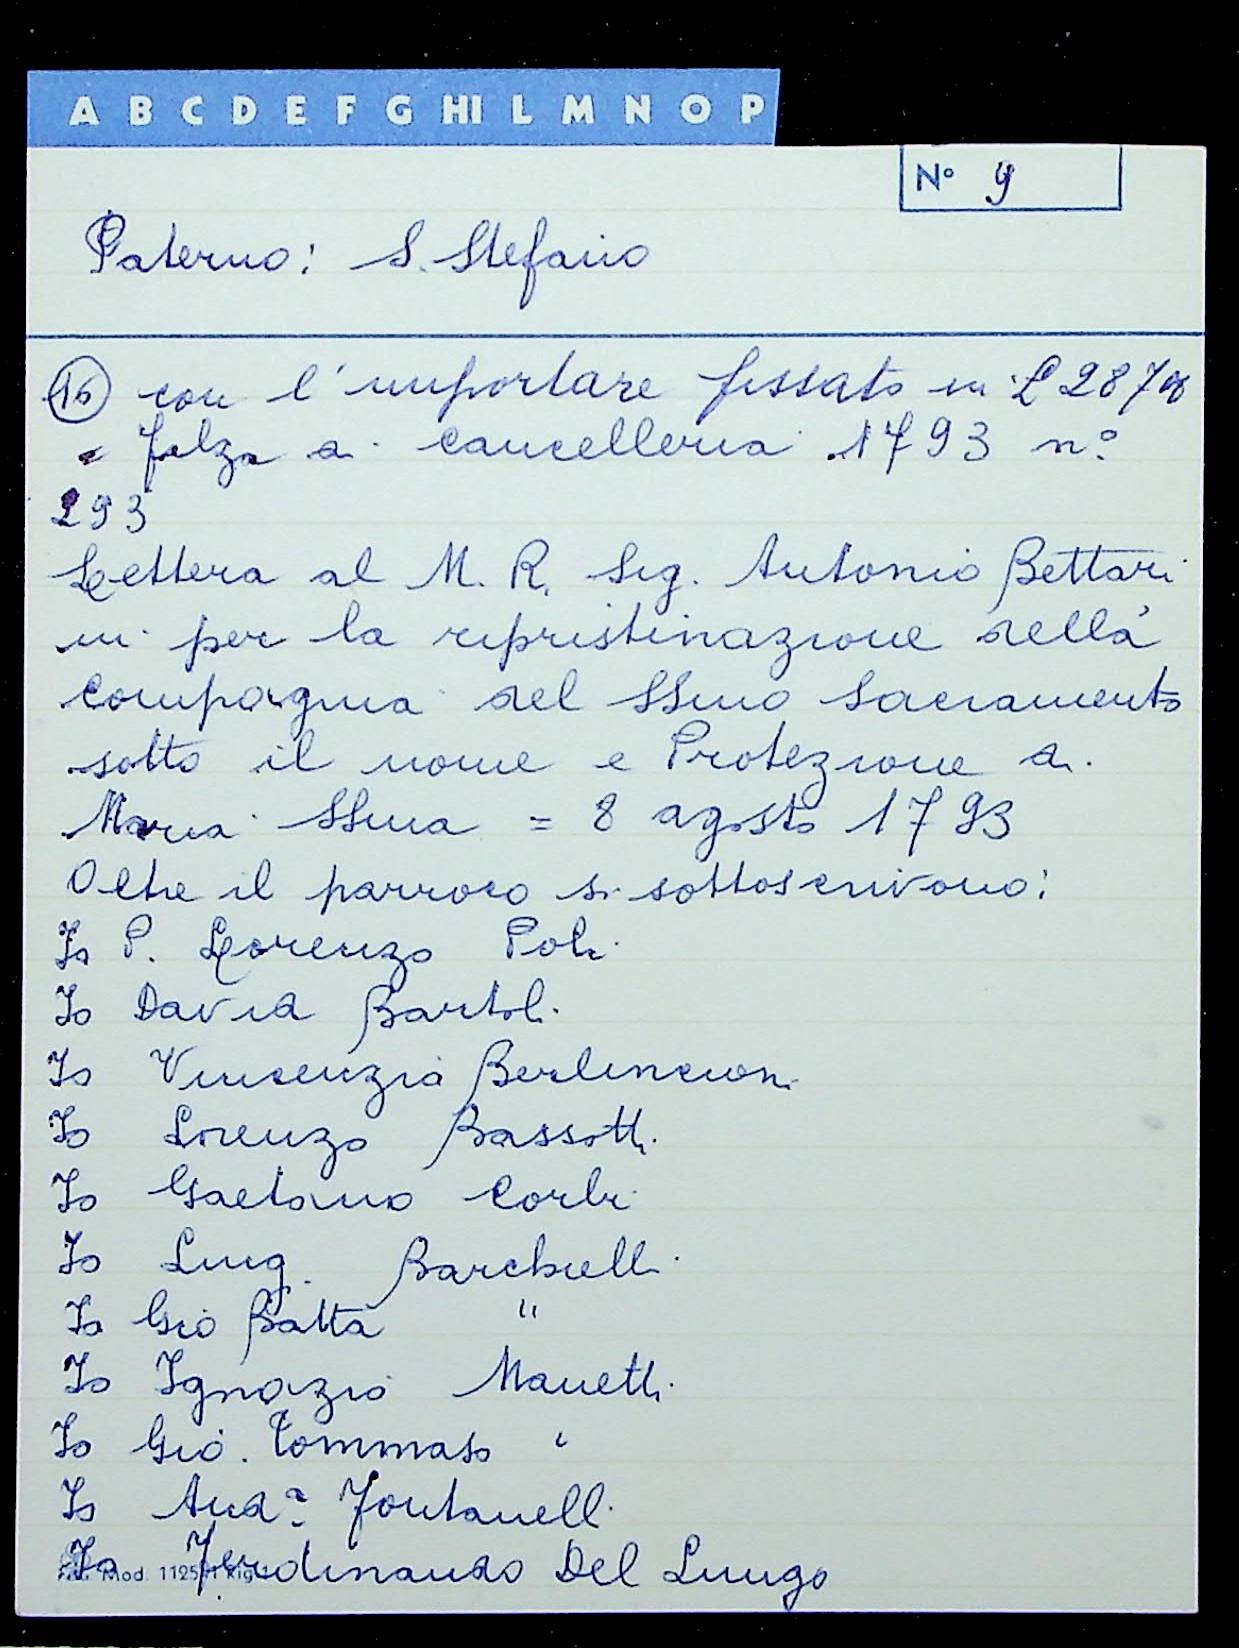 A B C D E F G HI L M N O P
N° 9
Paterno: S. Stefano
16 con l'importare fissato in £ 287
= Filza di cancelleria 1793 n°
293
Lettera al M. R. Sig. Antonio Bettari
ni per la ripristinazione della
Compagnia del SSmo Sacramento
sotto il nome e Protezione di
Maria SSma = 8 agosto 1793
Oltre il parroco si sottoscrivono:
Io P. Lorenzo Poli
Io David Bartoli
Io Vincenzio Berlincioni
Io Lorenzo Bassotti
Io Gaetano Corbi
Io Luigi Barchielli
Io Gio Batta "
Io Ignazio Manetti
Io Gio. Tommaso "
Io And.ª Fontanelli
Io Ferdinando Del Lungo
Mod. 1125